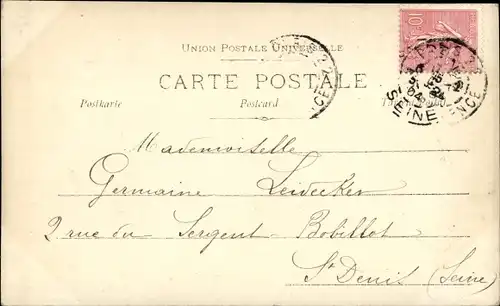 UNION POSTALE UNIVERSELLE
CARTE POSTALE
Postkarte Postcard
10
SEINE
Mademoiselle
Germaine Leidecker
2 rue du Sergent-Bobillot
St Denis (Seine)